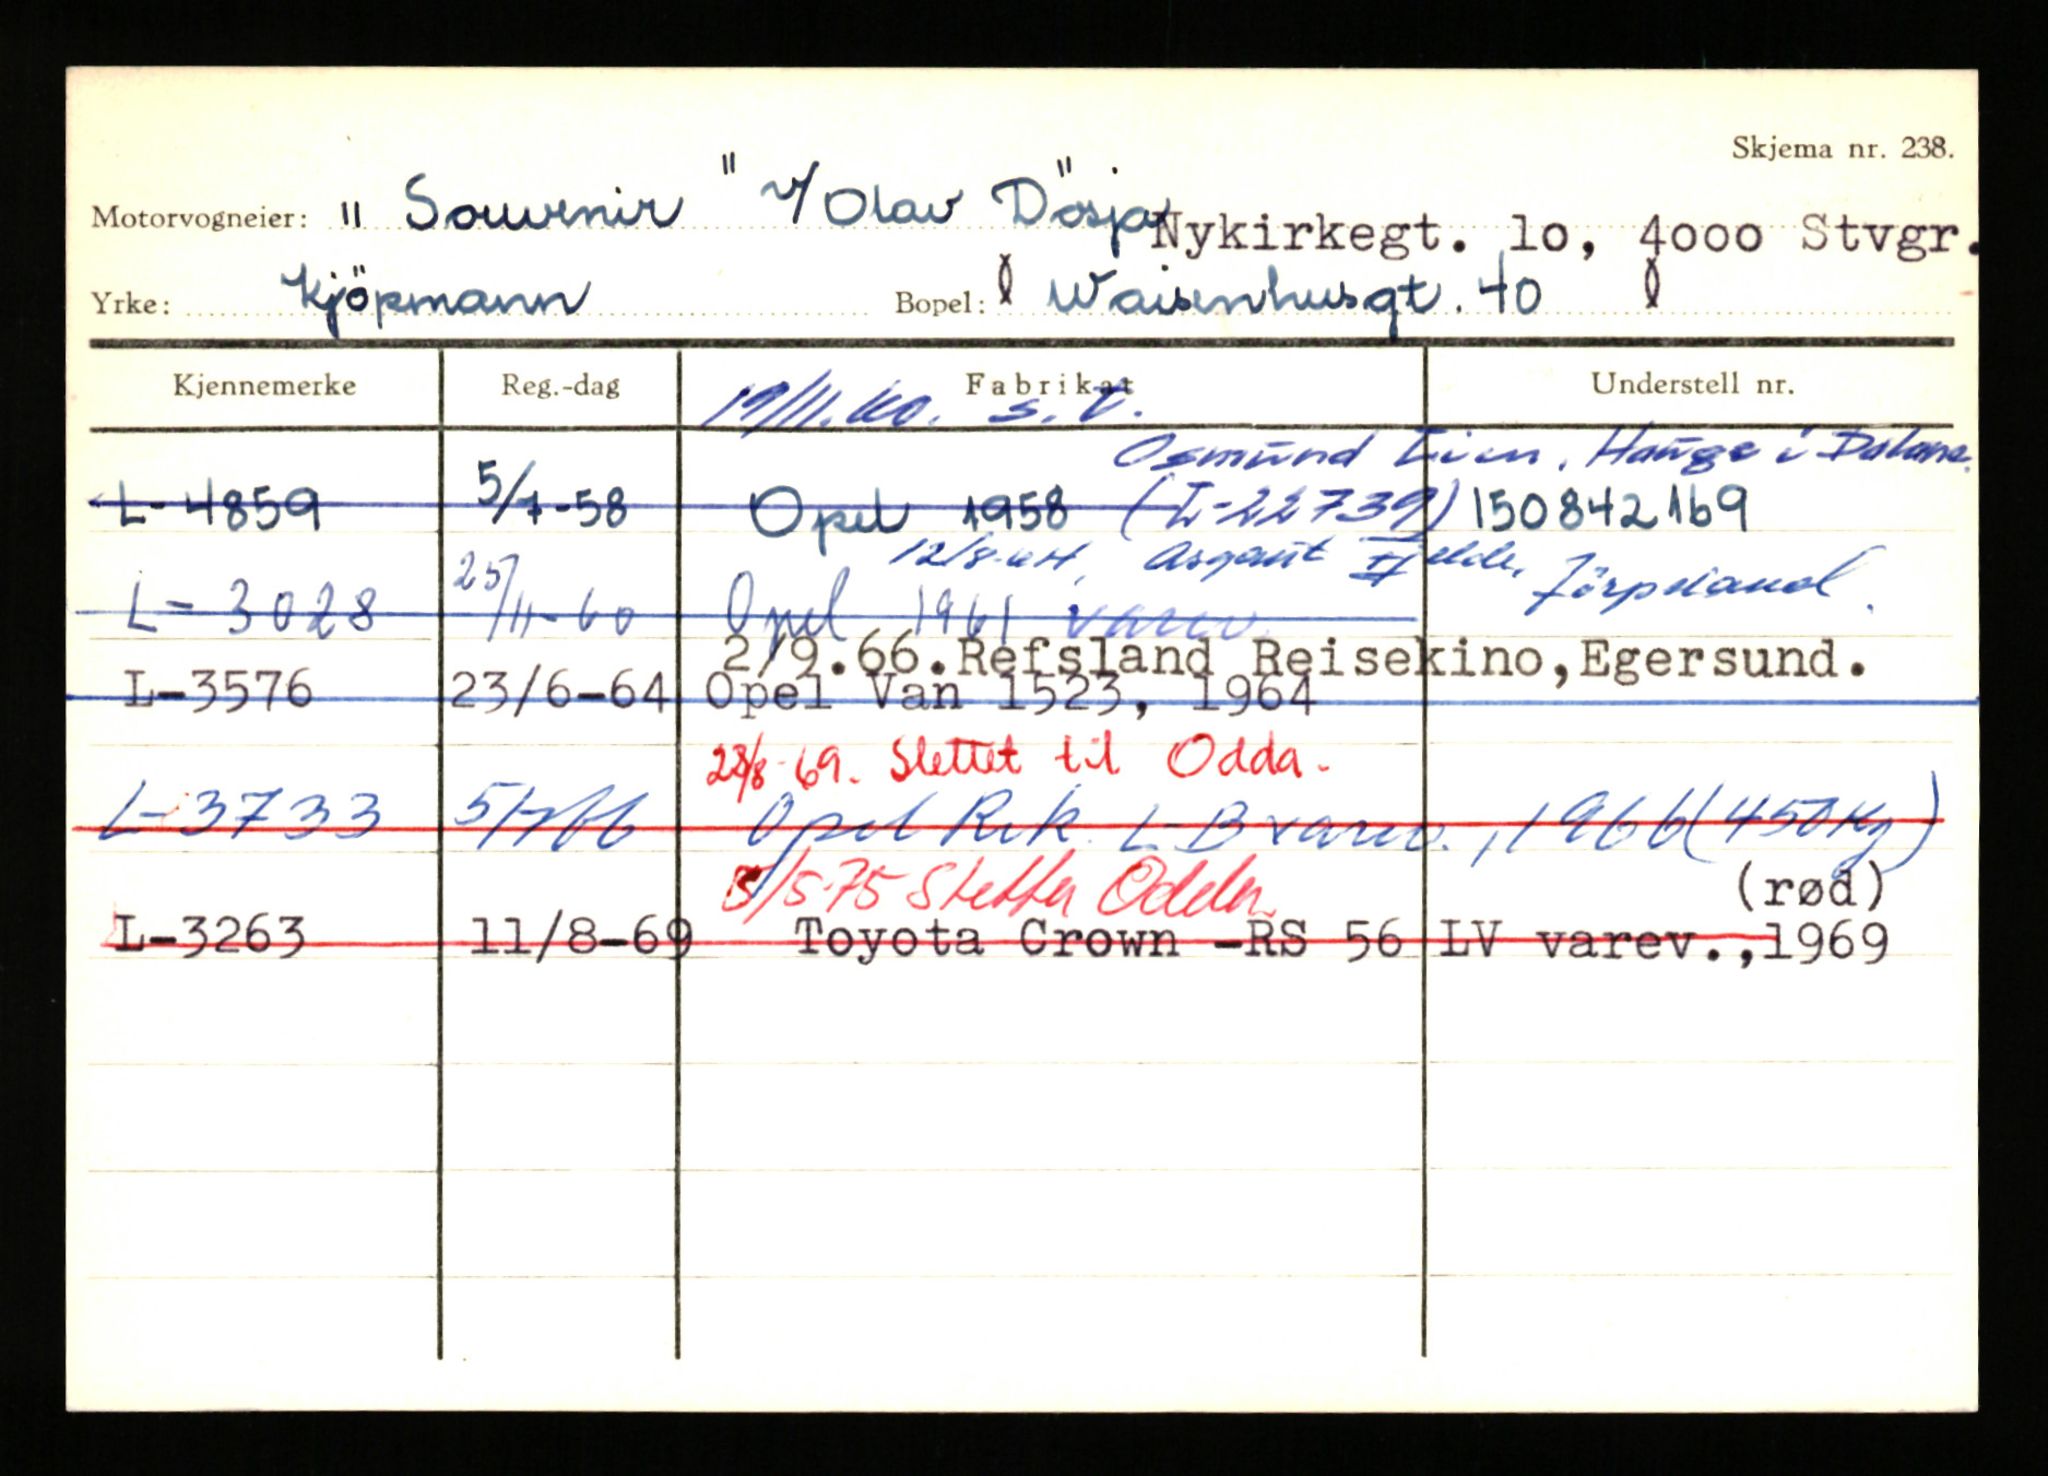 Skjema nr. 238.
Motorvogneier: "Souvenir" v/Olav Dösja Nykirkegt. 10, 4000 Stvgr.
Yrke: Kjöpmann Bopel: Waisenhusgt. 40
Kjennemerke Reg.-dag Fabrikat Understell nr.
19/11.60. s.t.
Osmund Lien, Hauge i Dalane.
L-4859 5/7-58 Opel 1958 (L-22739) 150842169
12/8-64, Asgaut Fjelde, Jörpeland.
L-3028 25/11-60 Opel 1961 varev.
2/9.66.Refsland Reisekino,Egersund.
L-3576 23/6-64 Opel Van 1523, 1964
23/8-69. Slettet til Odda.
L-3733 5/7-66 Opel Rek. L-B varev., 1966 (450 kg)
5/5-75 Slettet Odda.
(rød)
L-3263 11/8-69 Toyota Crown -RS 56 LV varev.,1969